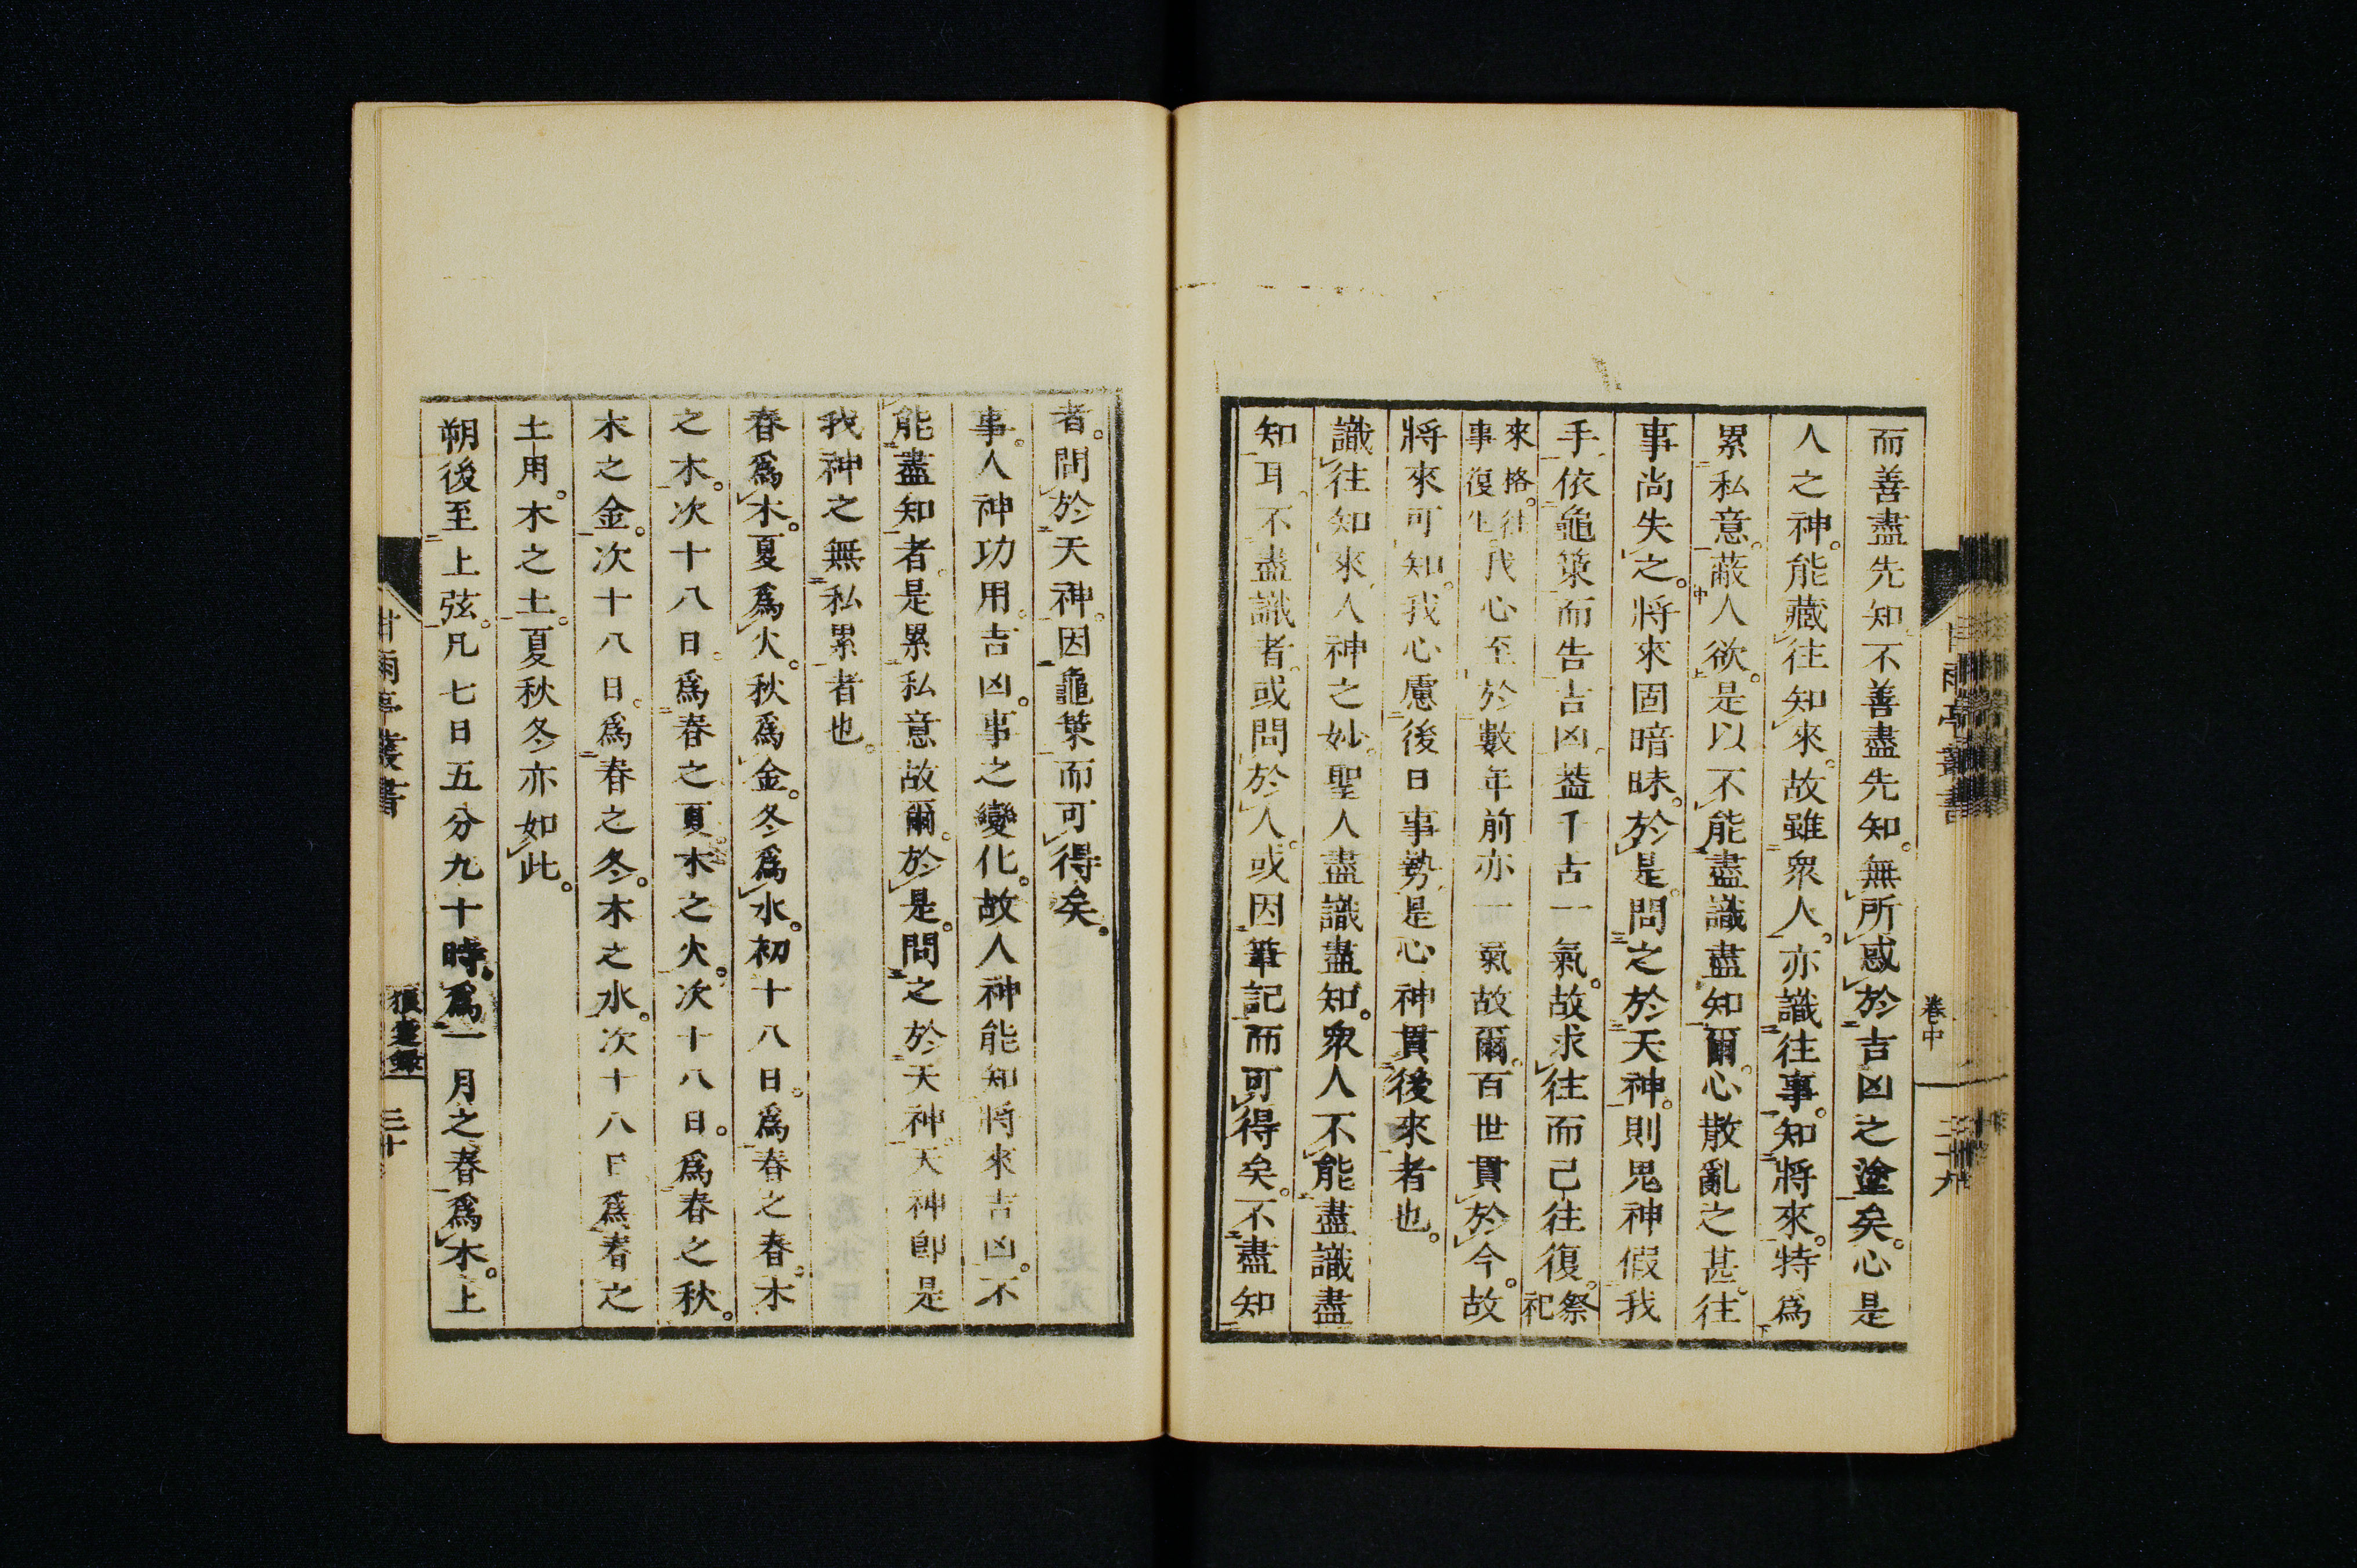 而善盡先知不善盡先知。無所惑於吉凶之塗矣。心是
人之神。能藏往知來。故雖衆人。亦識往事。知將來。特爲
累私意。蔽人欲。是以不能盡識盡知爾。心散亂之甚。往
事尚失之。將來固暗昧。於是。問之於天神。則鬼神假我
手。依龜筴而告吉凶。葢千古一氣。故求往而已往復。祭祀
來格。往事復生 我心至於數年前亦一氣故爾。百世貫於今。故
將來可知。我心慮後日事勢。是心神貫後來者也。
識往知來。人神之妙。聖人盡識盡知。衆人不能盡識盡
知耳。不盡識者。或問於人。或因筆記而可得矣。不盡知
者。問於天神。因龜筴而可得矣。
事。人神功用。吉凶。事之變化。故人神能知將來吉凶。不
能盡知者。是累私意故爾。於是。問之於天神。天神卽是
我神之無私累者也。
春爲木。夏爲火。秋爲金。冬爲水。初十八日。爲春之春。木
之木。次十八日。爲春之夏。木之火。次十八日。爲春之秋。
木之金。次十八日。爲春之冬。木之水。次十八日爲春之
土用。木之土。夏秋冬亦如此。
朔後至上弦。凡七日五分九十時。爲一月之春爲木。上
甘雨亭叢書
卷中
二十九
甘雨亭叢書
狼疐錄
三十